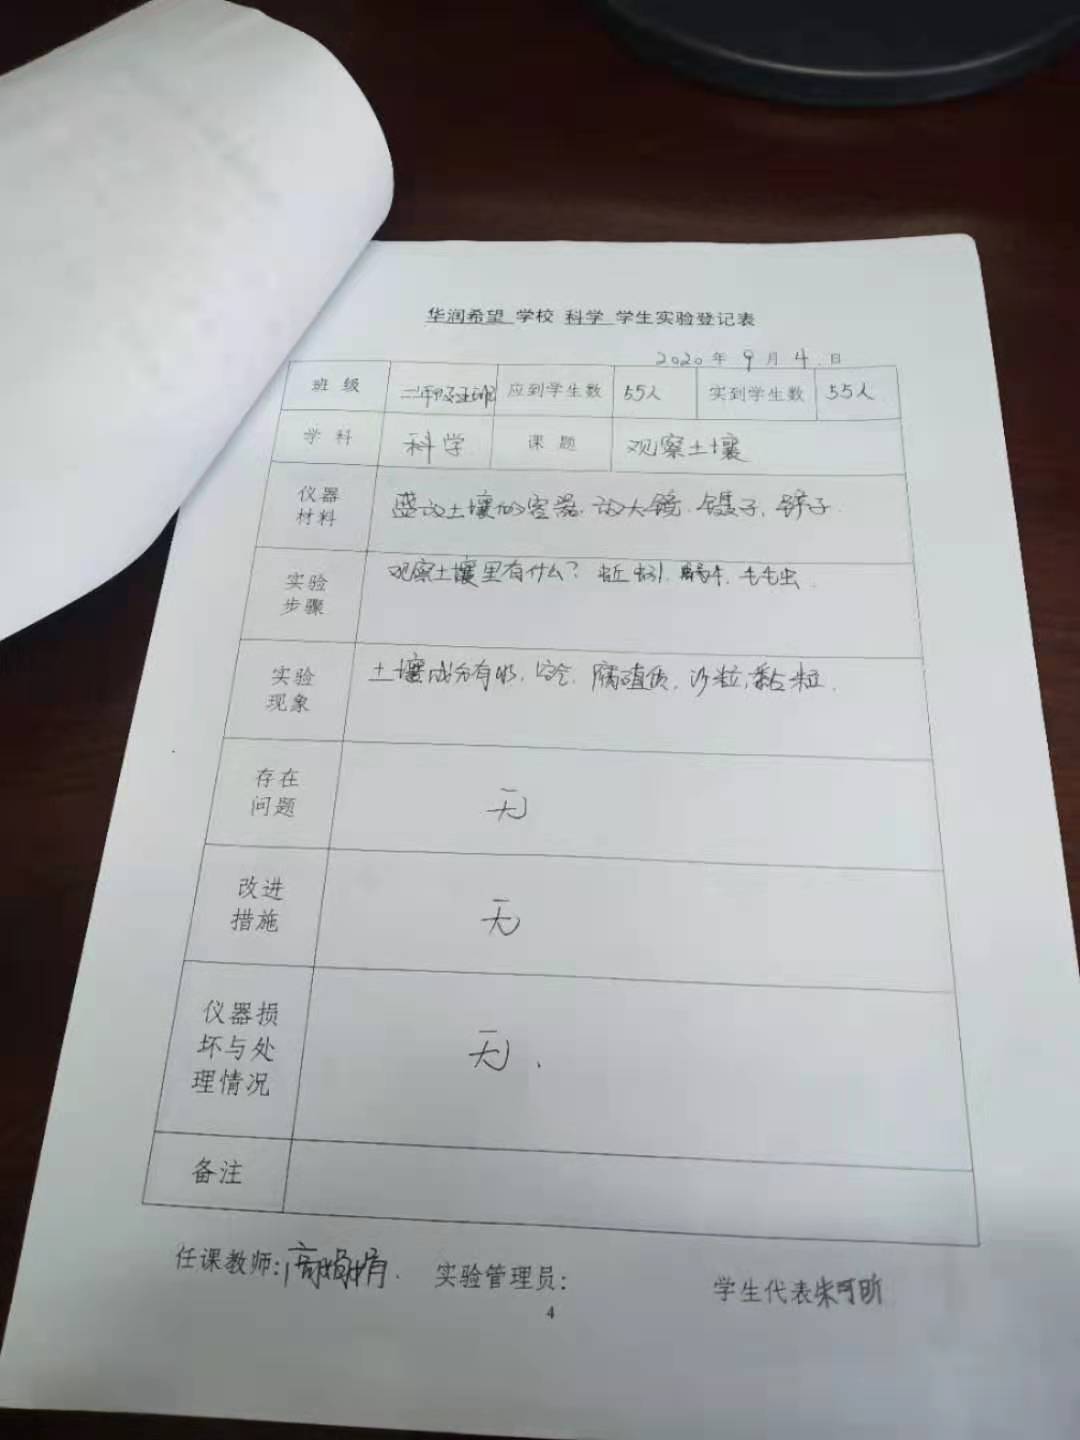 华润希望 学校 科学 学生实验登记表
2020 年 9 月 4 日
班 级 二年级五班 应到学生数 55人 实到学生数 55人
学 科 科学 课 题 观察土壤
仪器
材料
盛放土壤的容器 放大镜、镊子、铲子.
实验
步骤
观察土壤里有什么? 蚯蚓、蜗牛、毛毛虫.
实验
现象
土壤成分有水、空气、腐殖质、沙粒、黏粒.
存在
问题
无
改进
措施
无
仪器损
坏与处
理情况
无.
备注
任课教师: 实验管理员: 学生代表朱可昕
4